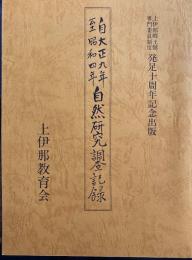 上伊那郷土館
専門委員制度
発足十周年記念出版
自大正九年
至昭和四年
自然研究調査記録
上伊那教育会